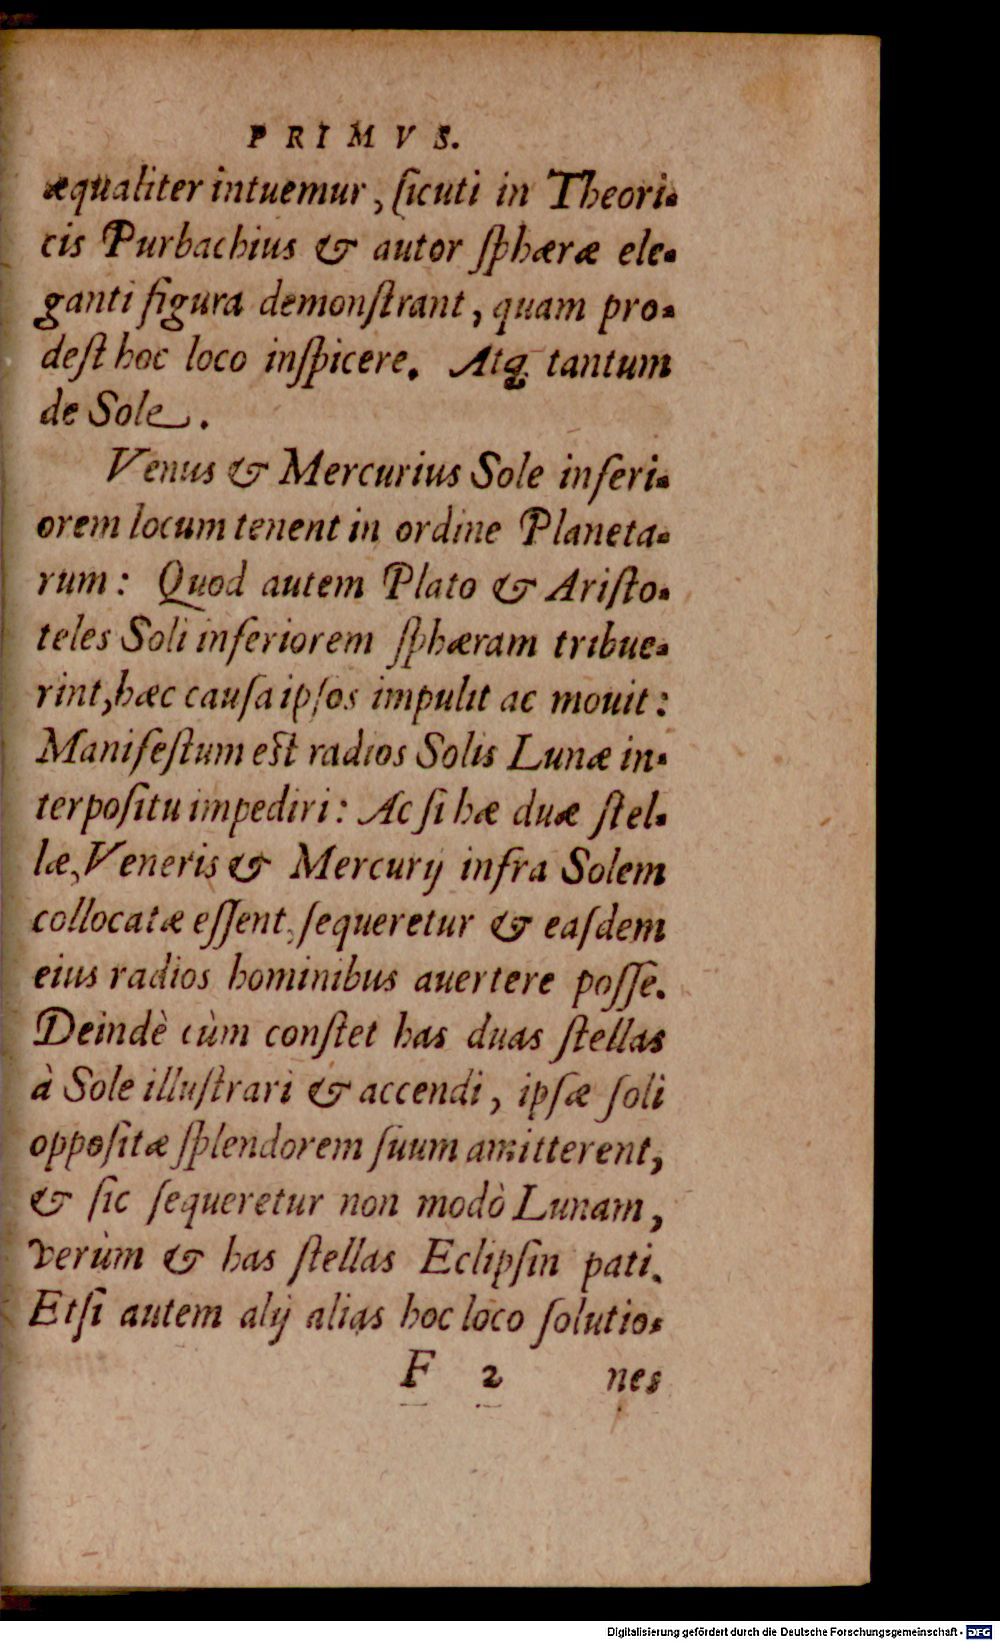 PRIMVS.
æqualiter intuemur, ſicuti in Theori-
cis Purbachius & autor ſphæræ ele-
ganti figura demonſtrant, quam pro-
deſt hoc loco inſpicere. Atq; tantum
de Sole.
Venus & Mercurius Sole inferi-
orem locum tenent in ordine Planeta-
rum: Quod autem Plato & Ariſto-
teles Soli inferiorem ſphæram tribue-
rint, hæc cauſa ipſos impulit ac mouit:
Manifeſtum eſt radios Solis Lunæ in-
terpoſitu impediri: Ac ſi hæ duæ ſtel-
læ, Veneris & Mercurij infra Solem
collocatæ eſſent, ſequeretur & eaſdem
eius radios hominibus auertere poſſe.
Deindè cùm conſtet has duas ſtellas
à Sole illuſtrari & accendi, ipſæ ſoli
oppoſitæ ſplendorem ſuum amitterent,
& ſic ſequeretur non modò Lunam,
verùm & has ſtellas Eclipſin pati.
Etſi autem alij alias hoc loco ſolutio-
F 2 nes
Digitalisierung gefördert durch die Deutsche Forschungsgemeinschaft - DFG